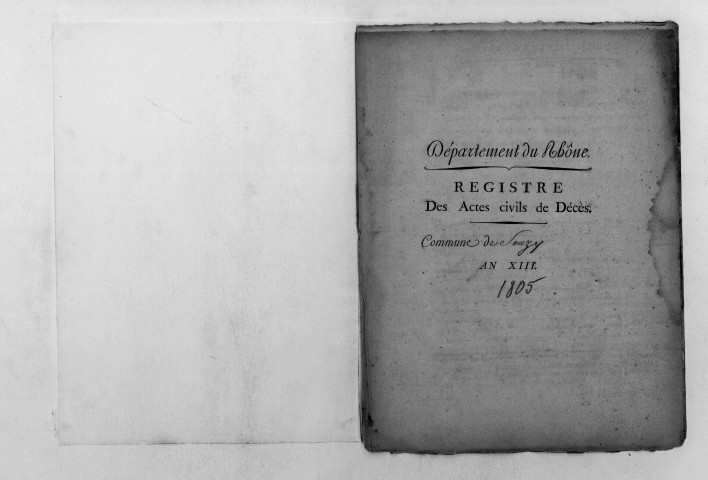 Département du Rhône.
REGISTRE
Des Actes civils de Décès.
Commune de Souzy
AN XIII.
1805